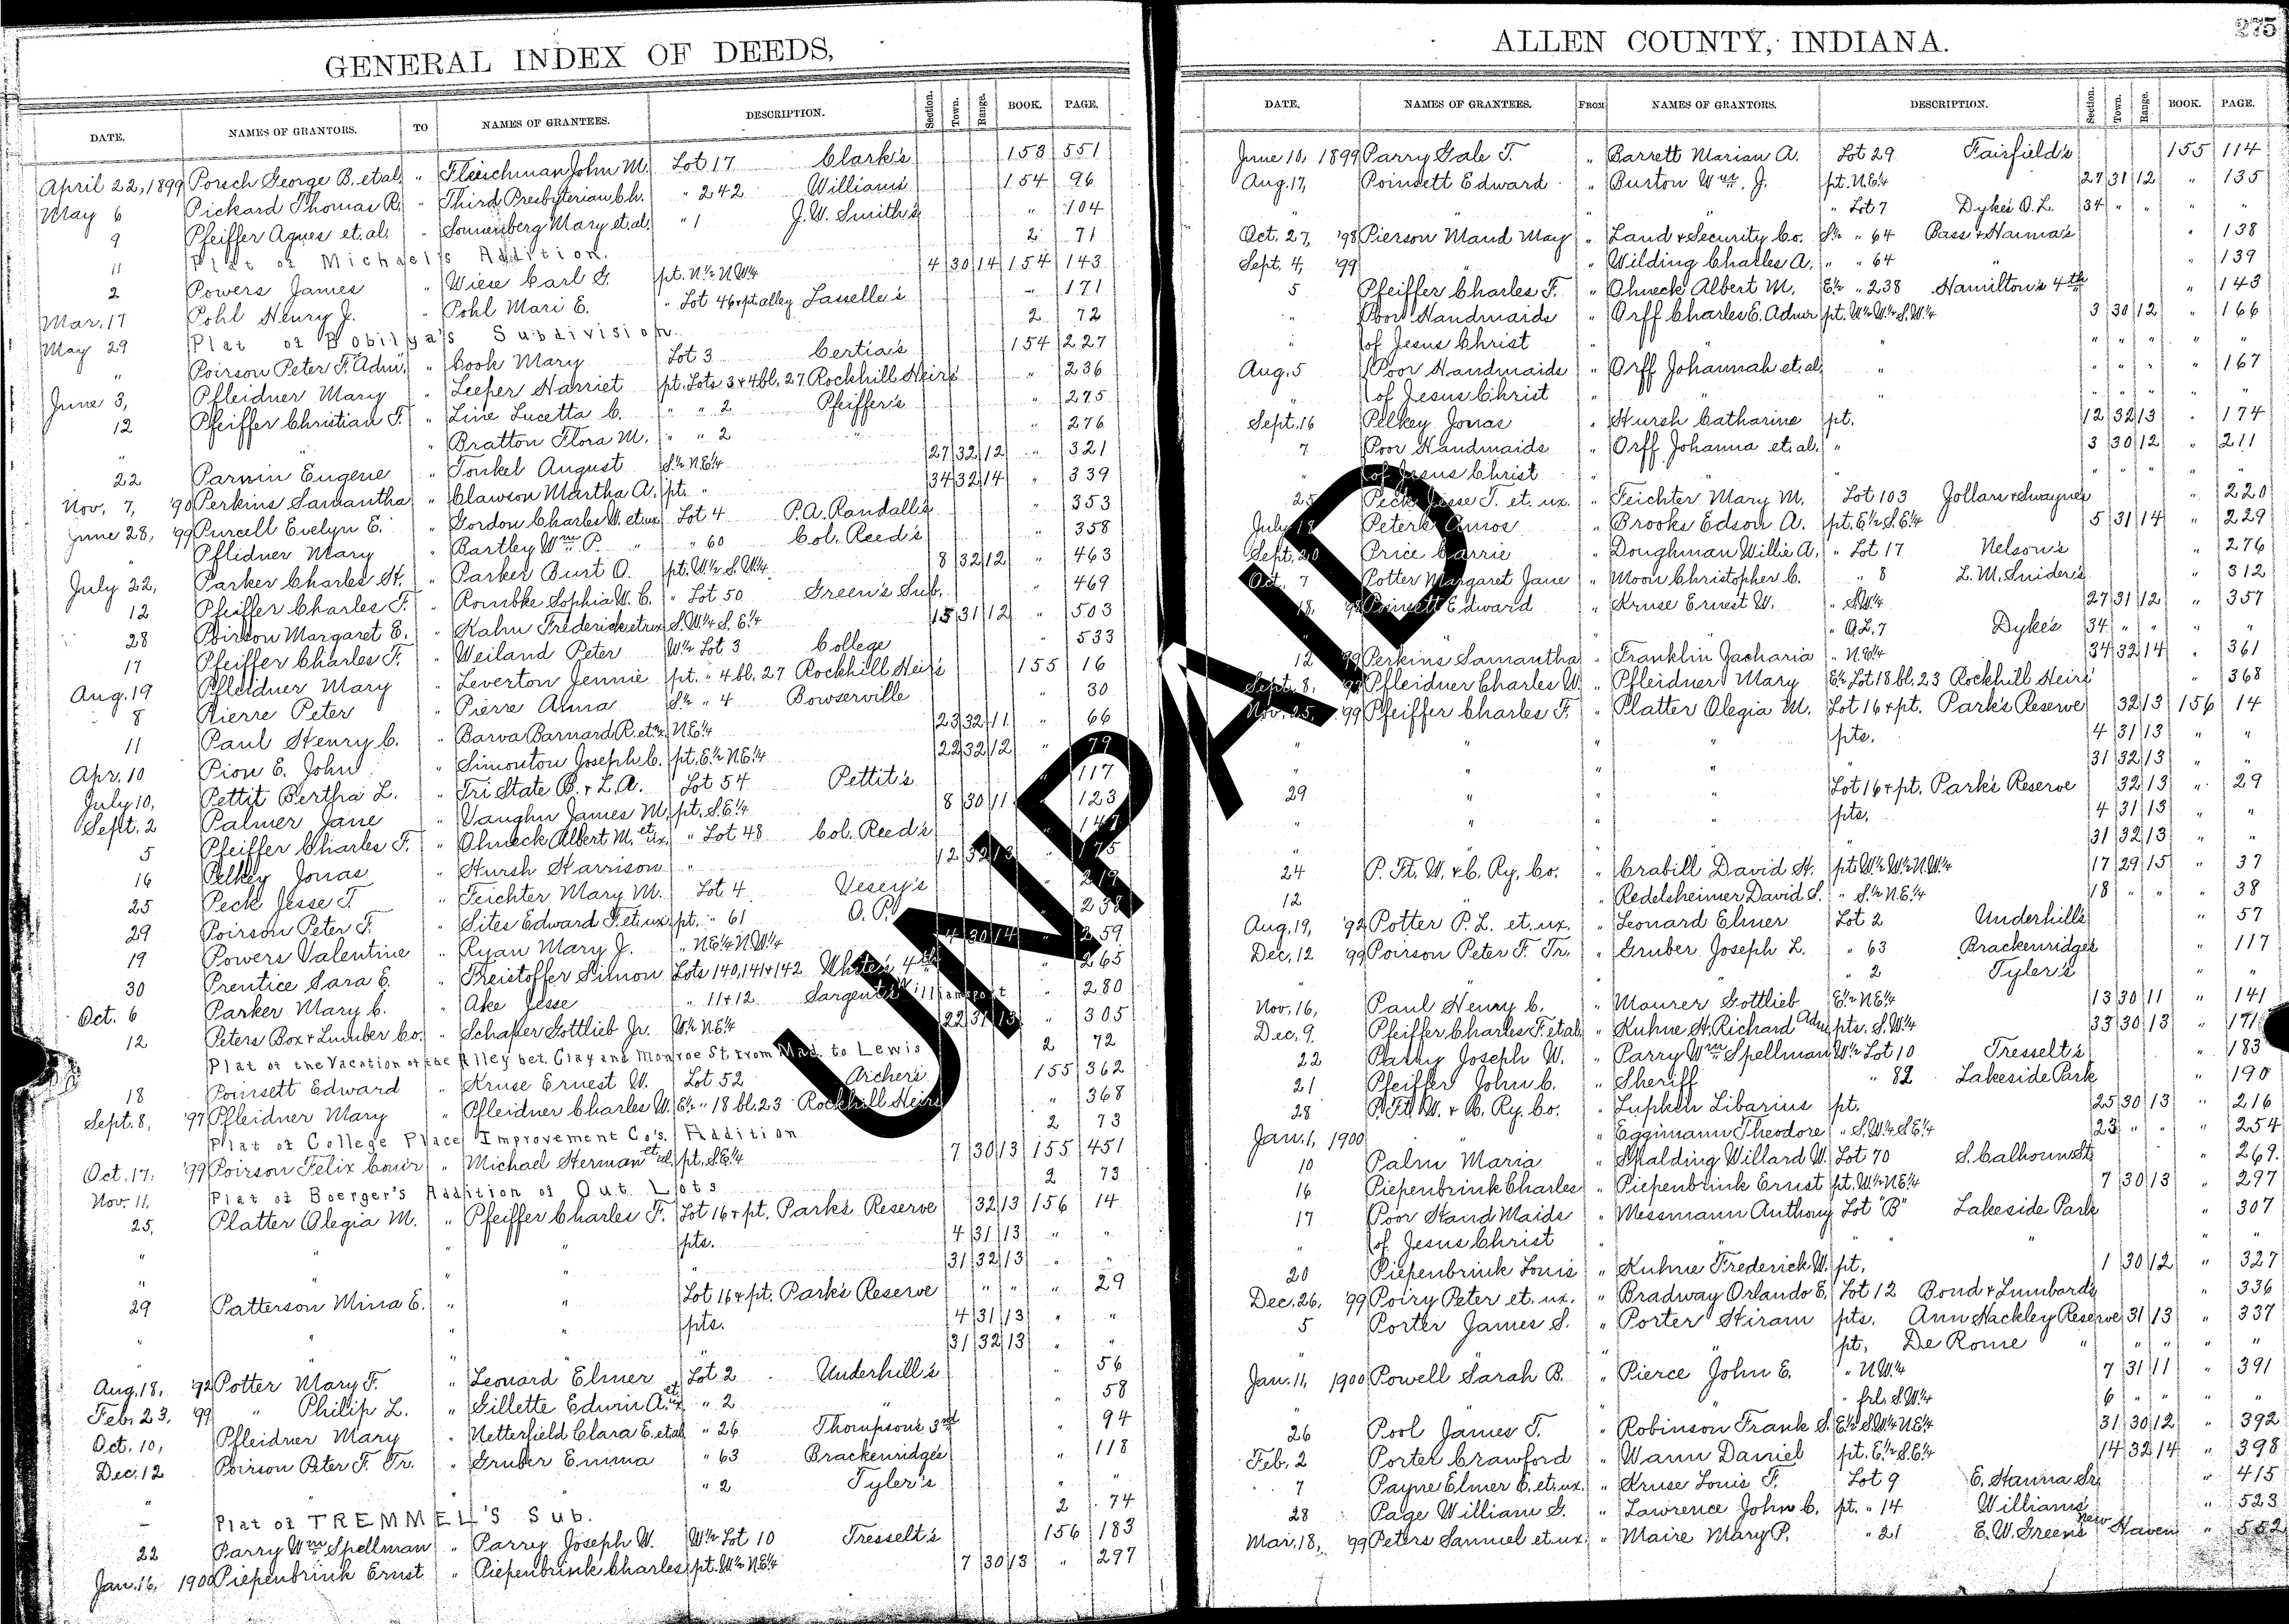 GENERAL INDEX OF DEEDS,
DATE. NAMES OF GRANTORS. TO NAMES OF GRANTEES. DESCRIPTION. Section. Town. Range. BOOK. PAGE.
April 22, 1899 Porsch George B. et al. " Fleischman John M. Lot 17 Clark's 153 551
May 6 Pickard Thomas R. " Third Presbyterian Ch. " 242 Williams' 154 96
9 Pfeiffer Agnes et. al. " Sonnenberg Mary et. al. " 1 J. W. Smith's " 104
11 Plat of Michael's Addition. 2 71
2 Powers James " Wiese Carl G. pt. N½ N.W¼ 4 30 14 154 143
Mar. 17 Pohl Henry J. " Pohl Mari E. " Lot 46 & pt. alley Lasselle's " 171
May 29 Plat of Bobilya's Subdivision 2 72
" Poirson Peter F. Adm'r. " Cook Mary Lot 3 Certia's 154 227
June 3, Pfleidner Mary " Leeper Harriet pt. Lots 3 & 4 bl. 27 Rockhill Heirs' " 236
12 Pfeiffer Christian F. " Line Lucetta C. " " 2 Pfeiffer's " 275
" " Bratton Flora M. " " 2 " " 276
22 Parnin Eugene " Tonkel August S½ N.E¼ 27 32 12 " 321
Nov. 7, '90 Perkins Samantha " Clawson Martha A. pt. " 34 32 14 " 339
June 28, '99 Purcell Evelyn E. " Gordon Charles W. et ux Lot 4 P. A. Randall's " 353
" Pflidner Mary " Bartley Wm P. " " 60 Col. Reed's " 358
July 22, Parker Charles H. " Parker Burt O. pt. W½ S.W¼ 8 32 12 " 463
12 Pfeiffer Charles F. " Rombke Sophia W. C. " Lot 50 Green's Sub. " 469
28 Poirson Margaret E. " Kahn Frederick et ux S.W¼ S.E¼ 15 31 12 " 503
17 Pfeiffer Charles F. " Weiland Peter W½ Lot 3 College " 533
Aug. 19 Pfleidner Mary " Leverton Jennie pt. " 4 bl. 27 Rockhill Heir's 155 16
8 Pierre Peter " Pierre Anna S½ " 4 Bowserville " 30
11 Paul Henry C. " Barva Barnard R. et ux N.E¼ 23 32 11 " 66
Apr. 10 Pion E. John " Simonton Joseph C. pt. E½ N.E¼ 22 32 12 " 79
July 10, Pettit Bertha L. " Tri State B. & L. A. Lot 54 Pettit's " 117
Sept. 2 Palmer Jane " Vaughn James M. pt. S.E¼ 8 30 11 " 123
5 Pfeiffer Charles F. " Ohneck Albert M. et ux. " Lot 48 Col. Reed's " 147
16 Pelkey Jonas " Hursh Harrison " 12 32 13 " 175
25 Peck Jesse T " Feichter Mary M. Lot 4 Vesey's " 219
29 Poirson Peter F. " Sites Edward F. et ux pt. " 61 O. P. " 238
19 Powers Valentine " Ryan Mary J. " N.E¼ N.W¼ 4 30 14 " 259
30 Prentice Sara E. " Freistoffer Simon Lots 140, 141 & 142 White's 4th " 265
Oct. 6 Parker Mary C. " Ake Jesse " 11 & 12 Sargent's Williamsport " 280
12 Peters Box & Lumber Co. " Schaper Gottlieb Jr. W½ N.E¼ 22 31 13 " 305
Plat of the Vacation of the Alley bet. Clay and Monroe St. from Mad. to Lewis 2 72
18 Poinsett Edward " Kruse Ernest W. Lot 52 Archer's 155 362
Sept. 8, '97 Pfleidner Mary " Pfleidner Charles W. E½ " 18 bl. 23 Rockhill Heirs " 368
Plat of College Place Improvement Co's. Addition 2 73
Oct. 17, '99 Poirson Felix Com'r " Michael Herman et al. pt. S.E¼ 7 30 13 155 451
Nov. 11, Plat of Boerger's Addition of Out Lots 2 73
25, Platter Olegia M. " Pfeiffer Charles F. Lot 16 & pt. Park's Reserve 32 13 156 14
" " " " pts. 4 31 13 " "
" " " " " 31 32 13 " "
29 Patterson Mina E. " " Lot 16 & pt. Park's Reserve " " " 29
" " " " pts. 4 31 13 " "
" " " " " 31 32 13 " "
Aug. 18, '92 Potter Mary F. " Leonard Elmer Lot 2 Underhill's " 56
Feb. 23, '99 " Philip L. " Gillette Edwin A. et ux " 2 " " 58
Oct. 10, Pfleidner Mary " Netterfield Clara E. et al " 26 Thompson's 3rd " 94
Dec. 12 Poirson Peter F. Tr. " Gruber Emma " 63 Brackenridge's " 118
" " 2 Tyler's " "
– Plat of TREMMEL'S Sub. 2 74
22 Parry Wm Spellman " Parry Joseph W. W½ Lot 10 Tresselt's 156 183
Jan. 16, 1900 Piepenbrink Ernst " Piepenbrink Charles pt. W½ N.E¼ 7 30 13 " 297
275
ALLEN COUNTY, INDIANA.
DATE. NAMES OF GRANTEES. FROM NAMES OF GRANTORS. DESCRIPTION. Section. Town. Range. BOOK. PAGE.
June 10, 1899 Parry Gale T. " Barrett Marian A. Lot 29 Fairfield's 155 114
Aug. 17, Poinsett Edward " Burton Wm. J. pt. N.E¼ 27 31 12 " 135
" " " " " Lot 7 Dyke's O. L. 34 " " " "
Oct. 27, '98 Pierson Maud May " Land & Security Co. S½ " 64 Bass & Hanna's " 138
Sept. 4, '99 " " Wilding Charles A. " " 64 " " 139
5 Pfeiffer Charles F. " Ohneck Albert M. E½ " 238 Hamilton's 4th " 143
" Poor Handmaids " Orff Charles E. Admr pt. W½ W½ S.W¼ 3 30 12 " 166
" of Jesus Christ " " " " " " " "
Aug. 5 Poor Handmaids " Orff Johannah et. al. " " " " " 167
" of Jesus Christ " " " " " " " "
Sept. 16 Pelkey Jonas " Hursh Catharine pt. 12 32 13 " 174
7 Poor Handmaids " Orff Johanna et. al. " 3 30 12 " 211
" of Jesus Christ " " " " " " " "
25 Peck Jesse T. et. ux. " Feichter Mary M. Lot 103 Jollars & Swaynes " 220
July 18 Peters Amos " Brooks Edson A. pt. E½ S.E¼ 5 31 14 " 229
Sept. 20 Price Carrie " Doughman Willie A. " Lot 17 Nelson's " 276
Oct. 7 Potter Margaret Jane " Moon Christopher C. " 8 L. M. Snider's " 312
18, '98 Poinsett Edward " Kruse Ernest W. " S.W¼ 27 31 12 " 357
" " " " " O. L. 7 Dyke's 34 " " " "
12 '99 Perkins Samantha " Franklin Zacharia " N.E¼ 34 32 14 " 361
Sept. 8, '97 Pfleidner Charles W. " Pfleidner Mary E½ Lot 18 bl. 23 Rockhill Heirs' " 368
Nov. 25, '99 Pfeiffer Charles F. " Platter Olegia M. Lot 16 & pt. Park's Reserve 32 13 156 14
" " " " pts. 4 31 13 " "
" " " " " 31 32 13 " "
29 " " " Lot 16 & pt. Park's Reserve 32 13 " 29
" " " " pts. 4 31 13 " "
" " " " " 31 32 13 " "
24 P. Ft. W. & C. Ry. Co. " Crabill David H. pt. W½ W½ N.W¼ 17 29 15 " 37
12 " " Redelsheimer David S. " S½ N.E¼ 18 " " " 38
Aug. 19, '92 Potter P. L. et. ux. " Leonard Elmer Lot 2 Underhills " 57
Dec. 12 '99 Poirson Peter F. Tr. " Gruber Joseph L. " 63 Brackenridges " 117
" " 2 Tyler's " "
Nov. 16, Paul Henry C. " Maurer Gottlieb E½ N.E¼ 13 30 11 " 141
Dec. 9 Pfeiffer Charles F. et al. " Kuhne H. Richard Adm. pts. S.W¼ 33 30 13 " 171
22 Parry Joseph W. " Parry Wm Spellman W½ Lot 10 Tresselt's " 183
21 Pfeiffer John C. " Sheriff " 82 Lakeside Park " 190
28 P. Ft. W. & C. Ry. Co. " Lupken Libarius pt. 25 30 13 " 216
Jan. 1, 1900 " " Eggimann Theodore " S.W¼ S.E¼ 23 " " " 254
10 Palm Maria " Spalding Willard W. Lot 70 S. Calhoun St. " 269.
16 Piepenbrink Charles " Piepenbrink Ernst pt. W½ N.E¼ 7 30 13 " 297
17 Poor Hand Maids " Messmann Anthony Lot "B" Lakeside Park " 307
" of Jesus Christ " " " " " "
20 Piepenbrink Louis " Kuhne Frederick W. pt. 1 30 12 " 327
Dec. 26, '99 Poiry Peter et. ux. " Bradway Orlando E. Lot 12 Bond & Lumbards " 336
5 Porter James S. " Porter Hiram pts. Ann Hackley Reserve 31 13 " 337
" " " pt. De Rome " " " " "
Jan. 11, 1900 Powell Sarah B. " Pierce John E. " N.W¼ 7 31 11 " 391
" frl. S.W¼ 6 " " " "
26 Pool James T. " Robinson Frank S. E½ S.W¼ N.E¼ 31 30 12 " 392
Feb. 2 Porter Crawford " Wann Daniel pt. E½ S.E¼ 14 32 14 " 398
7 Payne Elmer E. et. ux. " Kruse Louis F. Lot 9 E. Hanna Sr. " 415
28 Page William G. " Lawrence John C. pt. " 14 Williams' " 523
Mar. 18, '99 Peters Samuel et ux. " Maire Mary P. " 21 E. W. Green's New Haven " 552
UNPAID